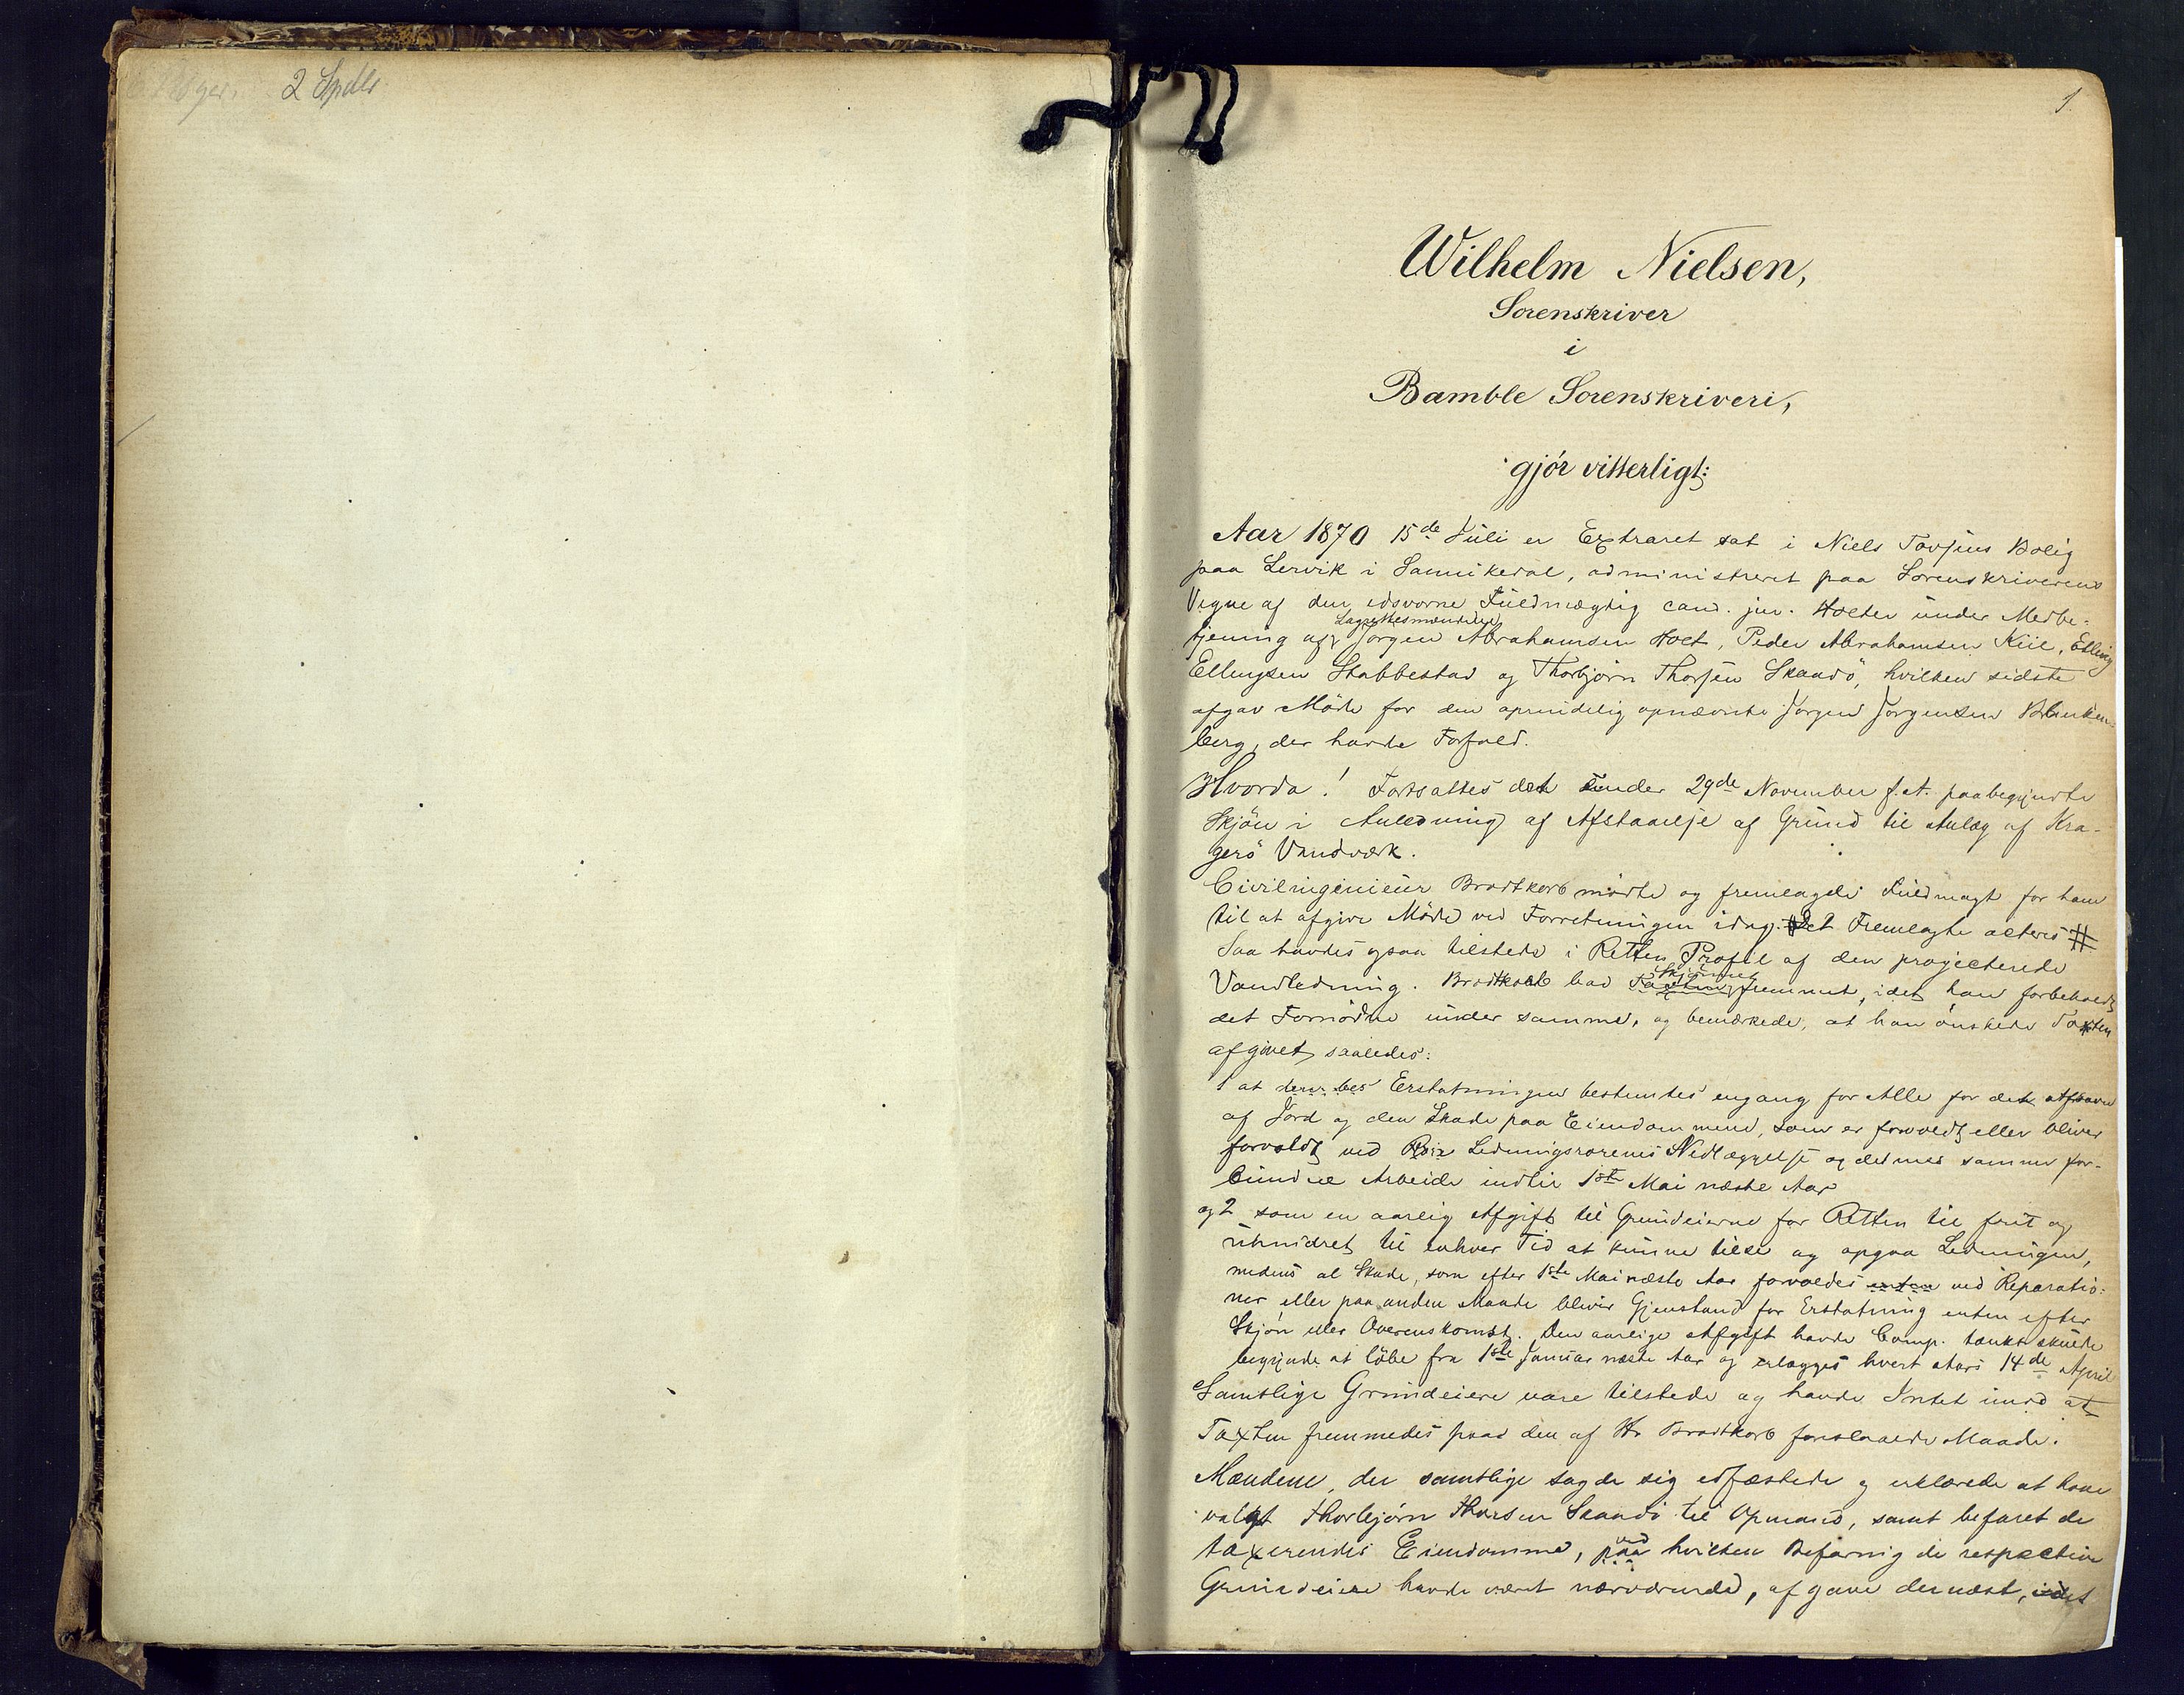 2 Spdlr
1.
Wilhelm Nielsen,
Sorenskriver
i
Bamble Sorenskriveri,
gjör vitterligt:
Aar 1870 15de Juli er Extraret sat i Niels Tovsens Bolig
paa Lervik i Sannikedal, administreret paa Sorenskriverens
Vegne af den edsvorne Fuldmægtig cand. jur. Holter under Medbe-
tjening af Lagrettesmændene Jörgen Abrahamsen Holt, Peder Abrahamsen Kiil, Elling
Ellingsen Stabbestad og Thorbjörn Thorsen Skaadö, hvilken sidste
afgav Möde for den oprindelig opnævnte Jörgen Jörgensen Blanken-
berg, der havde Forfald.
Hvorda! Fortsattes det under 29de November f. A. paabegyndte
Skjön i Anledning af Afstaaelse af Grund til Anlæg af Kra-
gerö Vandværk.
Civilingenieur Brodtkorb mödte og fremlagde Fuldmagt for ham
til at afgive Möde ved Forretningen idag. Det Fremlagte acteres #
Saa havdes ogsaa tilstede i Retten Profil af den projecterede
Vandledning. Brodtkorb bad Taxten Skjönnet fremmet, idet han forbeholdt
det Fornödne under samme, og bemærkede, at han önskede Taxten
afgivet saaledes:
1 at Erstatningen bestemtes engang for Alle for det
af Jord og den Skade paa Eiendommene, som er forvoldt eller bliver
forvoldt ved Ledningsrörenes Nedlæggelse og det med samme for-
bundne Arbeide indtil 1ste Mai næste Aar
og 2 som en aarlig Afgift til Grundeierne for Retten til frit og
uhindret til enhver Tid at kunne tilse og opgaa Ledningen,
medens al Skade, som efter 1ste Mai næste Aar forvoldes enten ved Reparatio-
ner eller paa anden Maade bliver Gjenstand for Erstatning enten efter
Skjön eller Overenskomst. Den aarlige Afgift havde Comp. tænkt skulde
begynde at löbe fra 1ste Januar næste Aar og erlægges hvert Aars 14de April
Samtlige Grundeiere vare tilstede og havde Intet imod at
Taxten fremmedes paa den af Hr Brodtkorb foreslaaede Maade.
Mændene, der samtlige sagde sig edfæstede og erklærede at have
valgt Thorbjörn Thorsen Skaadö til Opmand, samt befaret de
taxerendes Eiendomme, paa ved hvilken Befaring de respective
Grundeiere havde været nærværende, afgave dernæst, idet